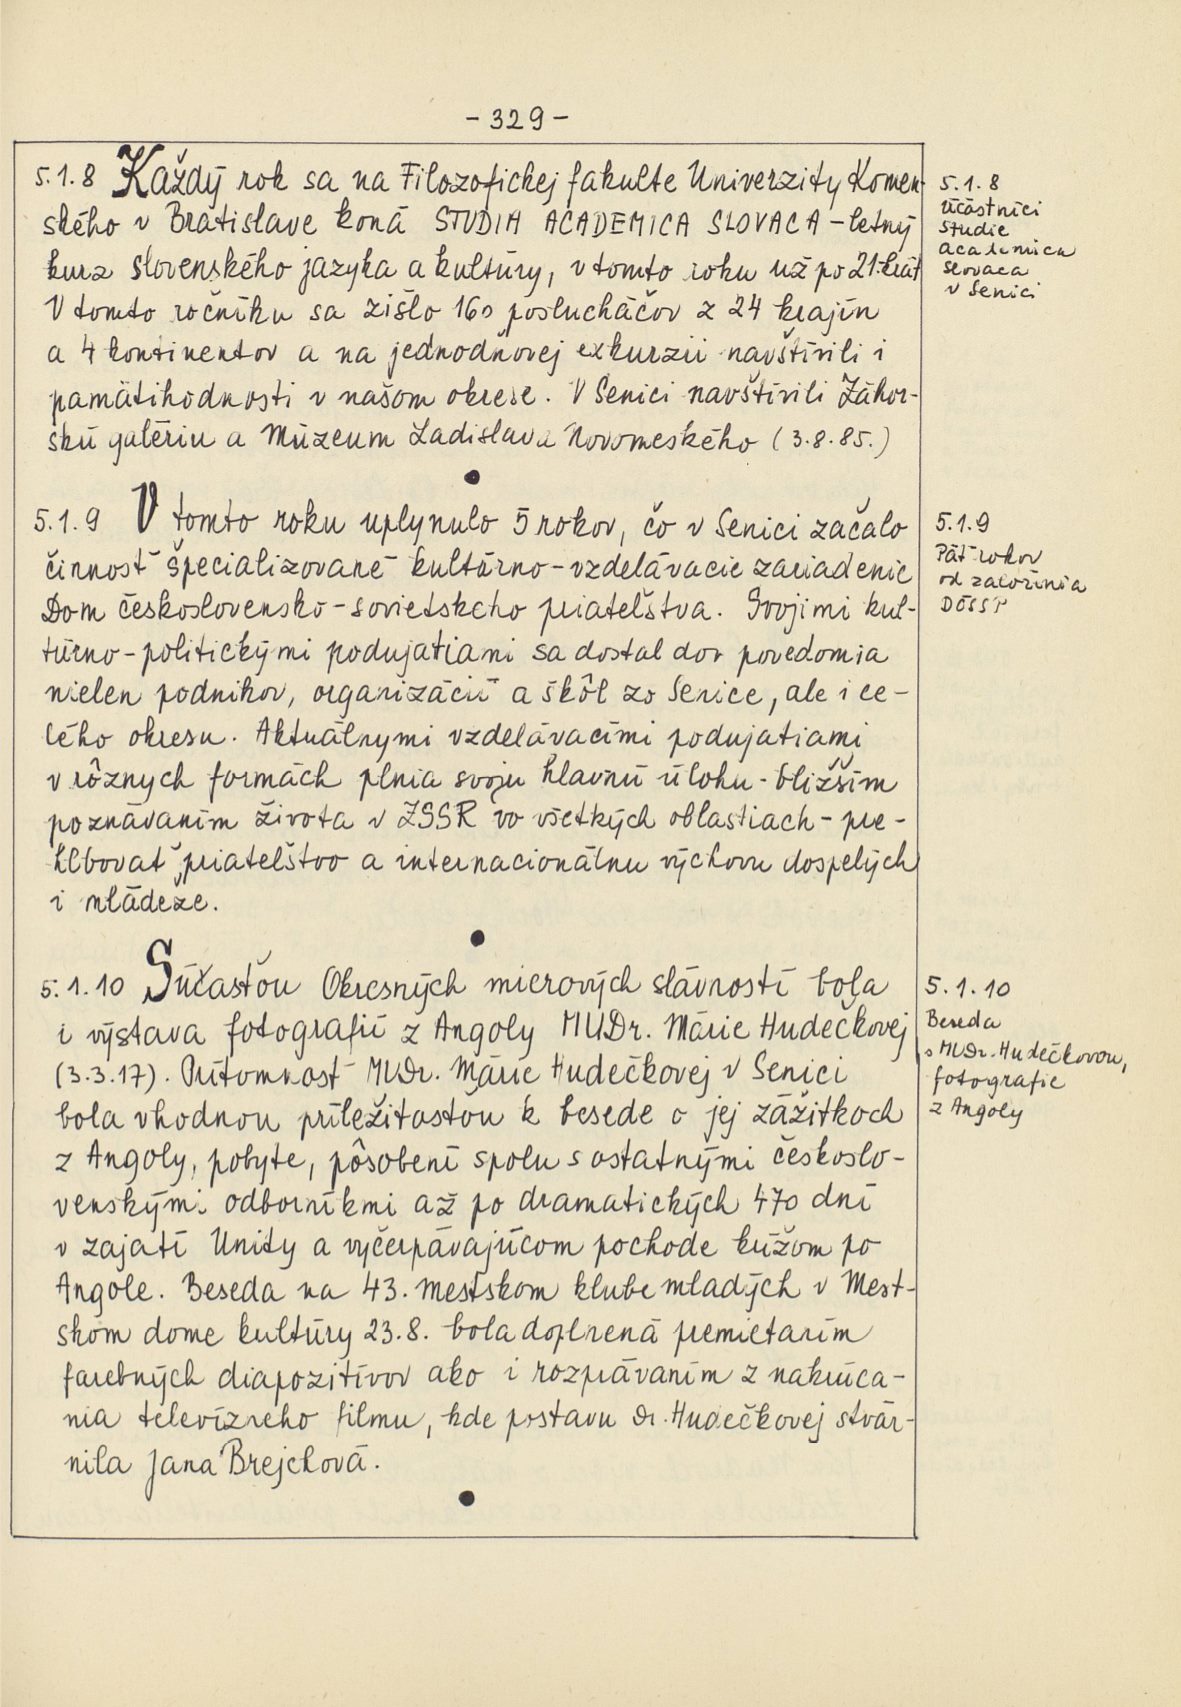 - 329 -
5.1.8 Každý rok sa na Filozofickej fakulte Univerzity Komen-
ského v Bratislave koná STUDIA ACADEMICA SLOVACA - letný
kurz slovenského jazyka a kultúry, v tomto roku už po 21.krát
V tomto ročníku sa zišlo 160 poslucháčov z 24 krajín
a 4 kontinentov a na jednodňovej exkurzii navštívili i
pamätihodnosti v našom okrese. V Senici navštívili Záhor-
skú galériu a Múzeum Ladislava Novomeského (3.8.85.)
5.1.8
Účastníci
studie
academica
slovaca
v Senici
5.1.9 V tomto roku uplynulo 5 rokov, čo v Senici začalo
činnosť špecializované kultúrno-vzdelávacie zariadenie
Dom československo-sovietskeho priateľstva. Svojimi kul-
túrno-politickými podujatiami sa dostal dov povedomia
nielen podnikov, organizácií a škôl zo Senice, ale i ce-
lého okresu. Aktuálnymi vzdelávacími podujatiami
v rôznych formách plnia svoju hlavnú úlohu - bližším
poznávaním života v ZSSR vo všetkých oblastiach - pre-
hlbovať priateľstvo a internacionálnu výchovu dospelých
i mládeže.
5.1.9
Päť rokov
od založenia
DČSSP
5.1.10 Súčasťou Okresných mierových slávností bola
i výstava fotografií z Angoly MUDr. Márie Hudečkovej
(3.3.17). Prítomnosť MUDr. Márie Hudečkovej v Senici
bola vhodnou príležitosťou k besede o jej zážitkoch
z Angoly, pobyte, pôsobení spolu s ostatnými českoslo-
venskými odborníkmi až po dramatických 470 dní
v zajatí Unity a vyčerpávajúcom pochode krížom po
Angole. Beseda na 43. mestskom klube mladých v Mest-
skom dome kultúry 23.8. bola doplnená premietaním
farebných diapozitívov ako i rozprávaním z nakrúca-
nia televízneho filmu, kde postavu dr. Hudečkovej stvár-
nila Jana Brejchová.
5.1.10
Beseda
s MUDr. Hudečkovou,
fotografie
z Angoly